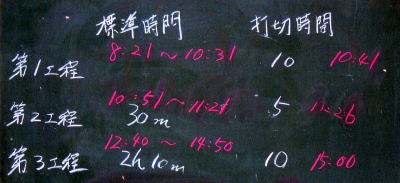 標準時間 打切時間
第1工程 8:21～10:31 10 10:41
第2工程 10:51～11:21 5 11:26
30m
第3工程 12:40～14:50 10 15:00
2h10m